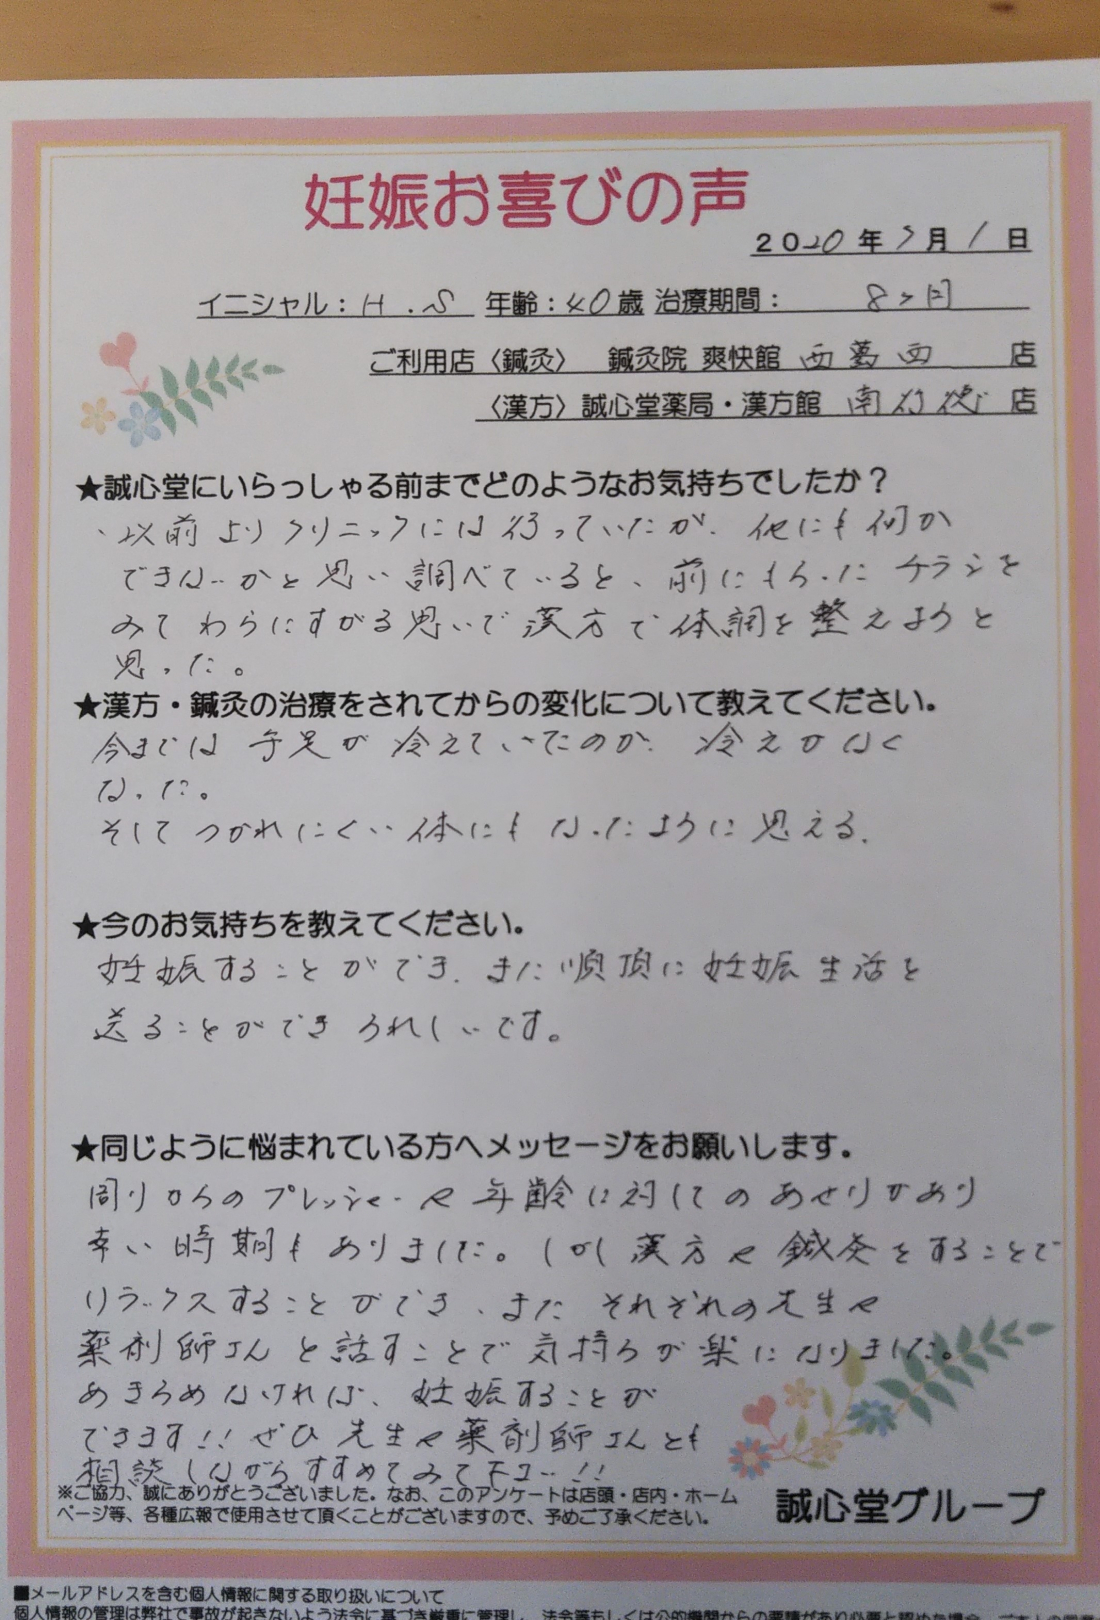 妊娠お喜びの声
2020年5月1日
イニシャル：H.S 年齢：40歳 治療期間： 8ヶ月
ご利用店〈鍼灸〉 鍼灸院 爽快館 西葛西 店
〈漢方〉誠心堂薬局・漢方館 南行徳 店
★誠心堂にいらっしゃる前までどのようなお気持ちでしたか？
、以前よりクリニックには行っていたが、他にも何か
できないかと思い調べていると、前にもらったチラシを
みてわらにすがる思いで漢方で体調を整えようと
思った。
★漢方・鍼灸の治療をされてからの変化について教えてください。
今までは手足が冷えていたのが、冷えがなく
なった。
そしてつかれにくい体にもなったように思える.
★今のお気持ちを教えてください。
妊娠することができ、また順頂に妊娠生活を
送ることができうれしいです。
★同じように悩まれている方へメッセージをお願いします。
周りからのプレッシャーや年齢に対してのあせりがあり
辛い時期もありました。しかし漢方や鍼灸をすることで
リラックスすることができ、またそれぞれの先生や
薬剤師さんと話すことで気持ちが楽になりました。
あきらめなければ、妊娠することが
できます!!ぜひ先生や薬剤師さんとも
相談しながらすすめてみて下さい!!
※ご協力、誠にありがとうございました。なお、このアンケートは店頭・店内・ホーム
ページ等、各種広報で使用させて頂くことがございますので、予めご了承ください。
誠心堂グループ
■メールアドレスを含む個人情報に関する取り扱いについて
個人情報の管理は弊社で事故が起きないよう法令に基づき厳重に管理し、法令等もしくは公的機関からの要請があり必要と認めた場合、